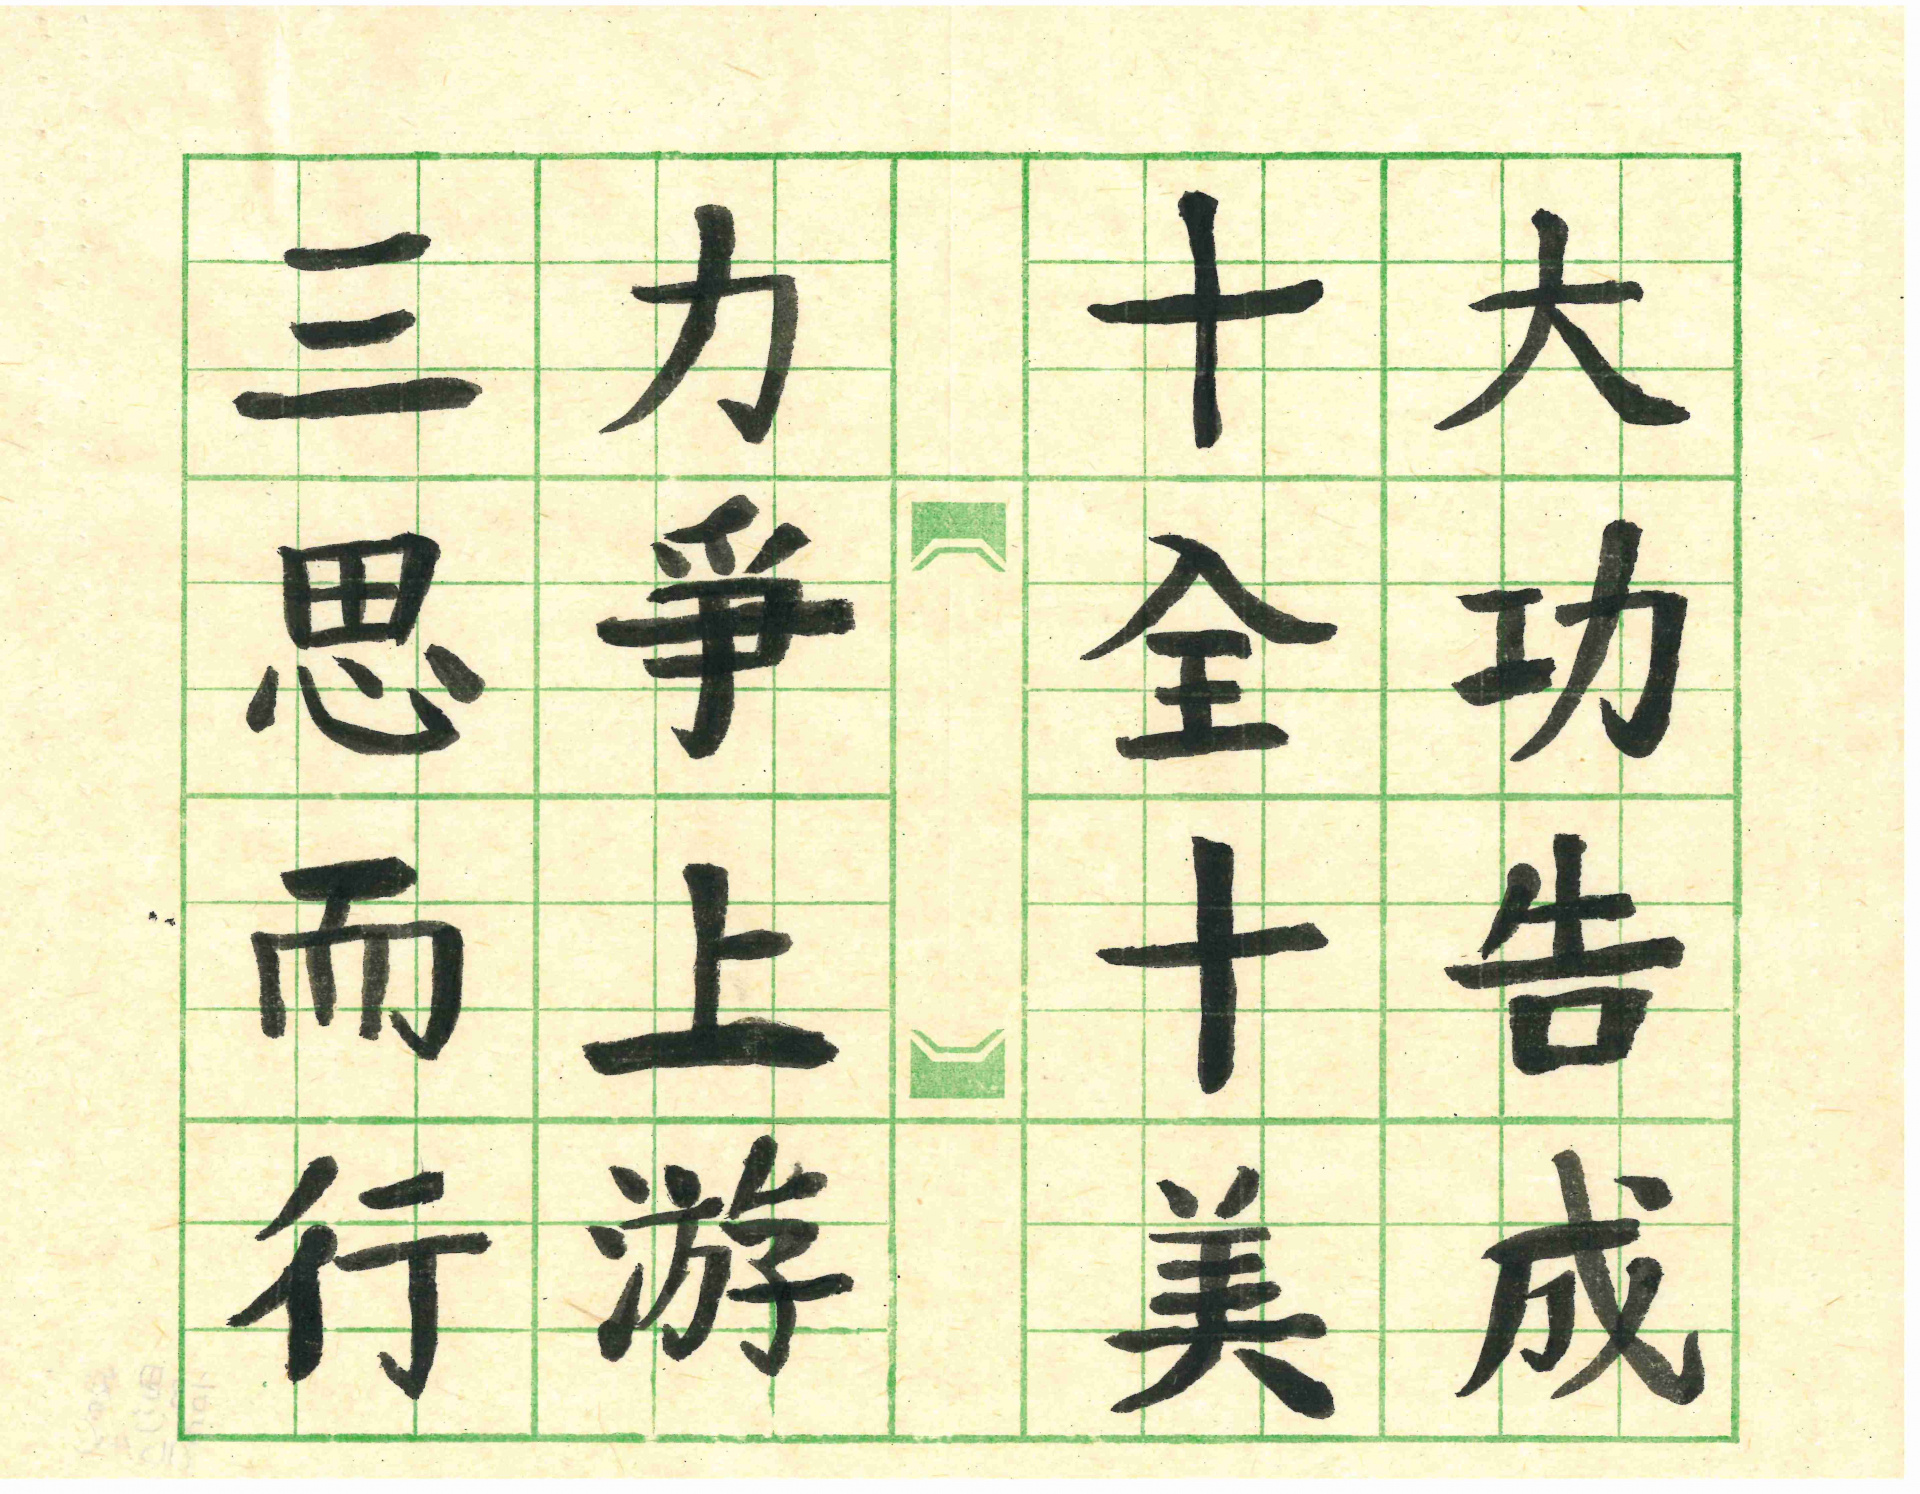 大功告成
十全十美
力爭上游
三思而行